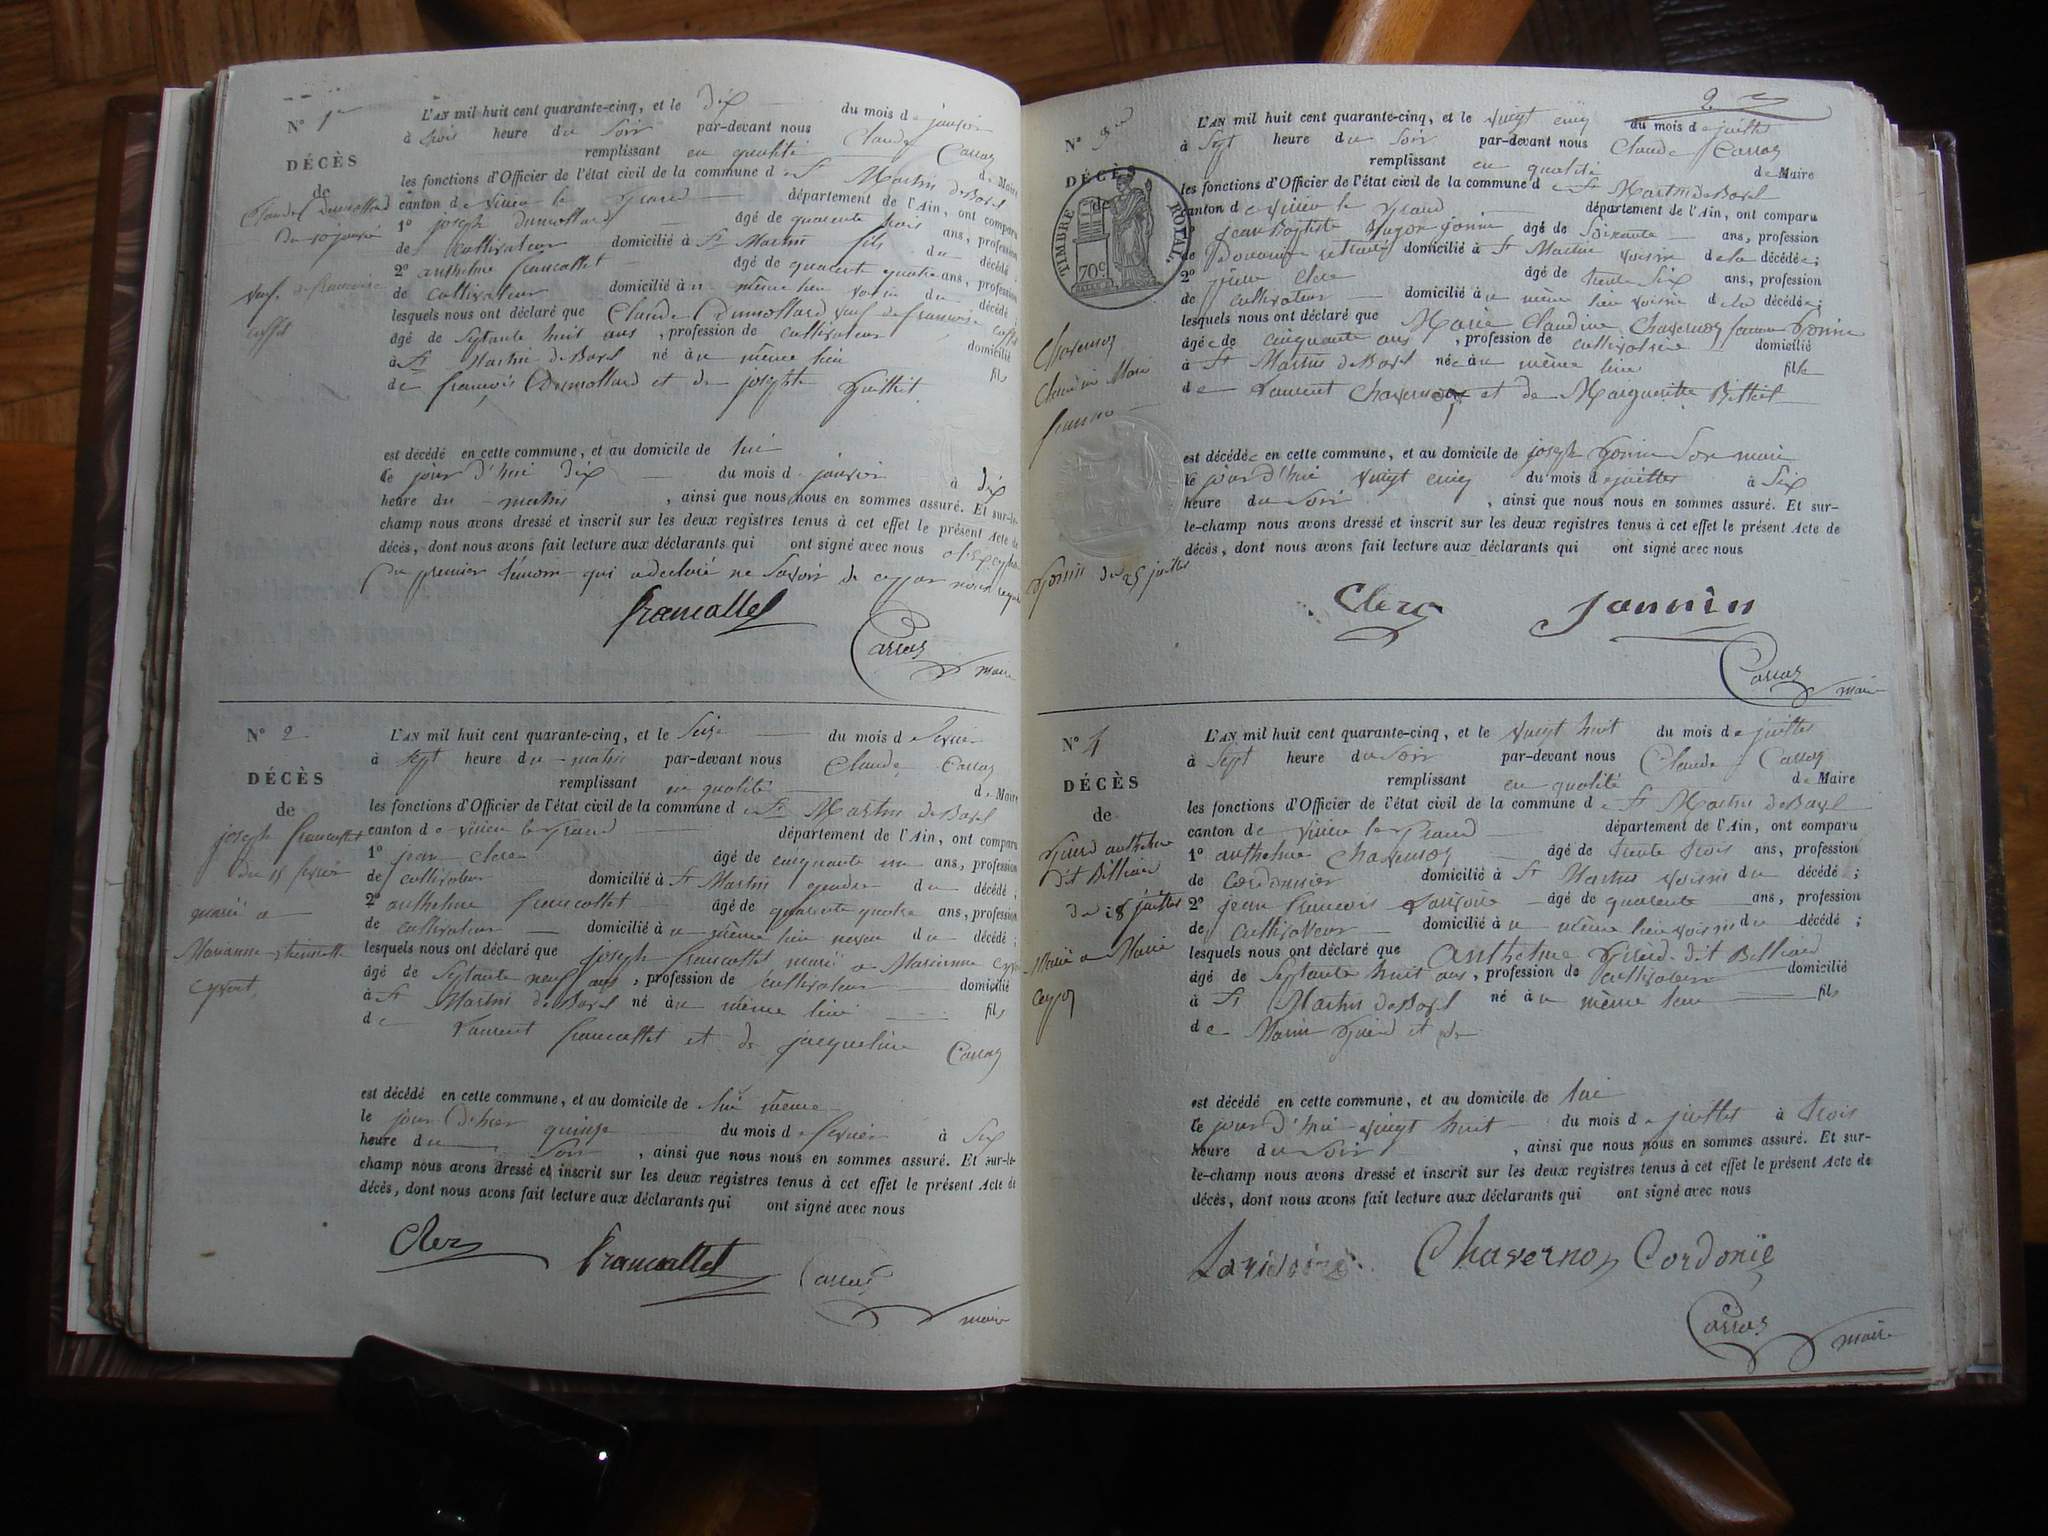 N° 1er
DÉCÈS
de
Claude Dumollard
du 10 janvier
veuf de francoise
L'AN mil huit cent quarante-cinq, et le dix du mois de janvier
à trois heure du soir par-devant nous Claude Carraz
remplissant en qualité de Maire
les fonctions d'Officier de l'état civil de la commune de St Martin de Bavel
canton de virieu le grand département de l'Ain, ont comparu
1° joseph Dumollard âgé de quarante trois ans, profession
de cultivateur domicilié à St Martin fils du décédé
2° anthelme francallet âgé de quarante quatre ans, profession
de cultivateur domicilié au même lieu voisin du décédé;
lesquels nous ont déclaré que Claude Dumollard veuf de francoise
âgé de septante huit ans, profession de cultivateur domicilié
à St Martin de Bavel né au même lieu fils
de françois Dumollard et de josephte
est décédé en cette commune, et au domicile de lui
le jour d'hui dix du mois de janvier à dix
heure du matin, ainsi que nous nous en sommes assuré. Et sur-le-
champ nous avons dressé et inscrit sur les deux registres tenus à cet effet le présent Acte de
décès, dont nous avons fait lecture aux déclarants qui ont signé avec nous
du premier témoin qui a déclaré ne savoir de ce par nous requis
francallet
Carraz maire
N° 2
DÉCÈS
de
joseph francallet
du 15 fevrier
marié a
Marianne
L'AN mil huit cent quarante-cinq, et le seize du mois de fevrier
à sept heure du matin par-devant nous Claude Carraz
remplissant en qualité de Maire
les fonctions d'Officier de l'état civil de la commune de St Martin de Bavel
canton de virieu le grand département de l'Ain, ont comparu
1° jean clerc âgé de cinquante un ans, profession
de cultivateur domicilié à St Martin gendre du décédé;
2° anthelme francallet âgé de quarante quatre ans, profession
de cultivateur domicilié au même lieu neveu du décédé;
lesquels nous ont déclaré que joseph francallet marié a Marianne
âgé de septante neuf ans, profession de cultivateur domicilié
à St Martin de Bavel né au même lieu fils
de Laurent francallet et de jacqueline Carraz
est décédé en cette commune, et au domicile de lui même
le jour d'hier quinze du mois de fevrier à six
heure du soir, ainsi que nous nous en sommes assuré. Et sur-le-
champ nous avons dressé et inscrit sur les deux registres tenus à cet effet le présent Acte de
décès, dont nous avons fait lecture aux déclarants qui ont signé avec nous
Clerc francallet Carraz
maire
2
N° 3
DÉCÈS
de
TIMBRE ROYAL
70c
Chavernoz
Claudine Marie
femme
Gonin du 25 juillet
L'AN mil huit cent quarante-cinq, et le vingt cinq du mois de juillet
à sept heure du soir par-devant nous Claude Carraz
remplissant en qualité de Maire
les fonctions d'Officier de l'état civil de la commune de St Martin de Bavel
canton de virieu le grand département de l'Ain, ont comparu
1° jean Baptiste Gonin âgé de soixante ans, profession
de Douanier retraité domicilié à St Martin voisin de la décédée;
2° clerc âgé de trente six ans, profession
de cultivateur domicilié au même lieu voisin de la décédée;
lesquels nous ont déclaré que Marie Claudine Chavernoz femme Gonin
âgée de cinquante ans, profession de cultivatrice domicilié
à St Martin de Bavel née au même lieu fille
de Laurent Chavernoz et de Marguerite Billiet
est décédée en cette commune, et au domicile de joseph Gonin son mari
le jour d'hui vingt cinq du mois de juillet à six
heure du soir, ainsi que nous nous en sommes assuré. Et sur-
le-champ nous avons dressé et inscrit sur les deux registres tenus à cet effet le présent Acte de
décès, dont nous avons fait lecture aux déclarants qui ont signé avec nous
Clerc Jonnin
Carraz maire
N° 4
DÉCÈS
de
anthelme
dit Billiard
du 28 juillet
Marié a Marie
L'AN mil huit cent quarante-cinq, et le vingt huit du mois de juillet
à sept heure du soir par-devant nous Claude Carraz
remplissant en qualité de Maire
les fonctions d'Officier de l'état civil de la commune de St Martin de Bavel
canton de virieu le grand département de l'Ain, ont comparu
1° anthelme Chavernoz âgé de trente trois ans, profession
de cordonnier domicilié à St Martin voisin du décédé;
2° jean francois âgé de quarante ans, profession
de cultivateur domicilié au même lieu voisin du décédé;
lesquels nous ont déclaré que anthelme dit Billiard
âgé de septante huit ans, profession de cultivateur domicilié
à St Martin de Bavel né au même lieu fils
de et de
est décédé en cette commune, et au domicile de lui
le jour d'hui vingt huit du mois de juillet à trois
heure du soir, ainsi que nous nous en sommes assuré. Et sur-
le-champ nous avons dressé et inscrit sur les deux registres tenus à cet effet le présent Acte de
décès, dont nous avons fait lecture aux déclarants qui ont signé avec nous
Chavernoz Cordonie
Carraz maire